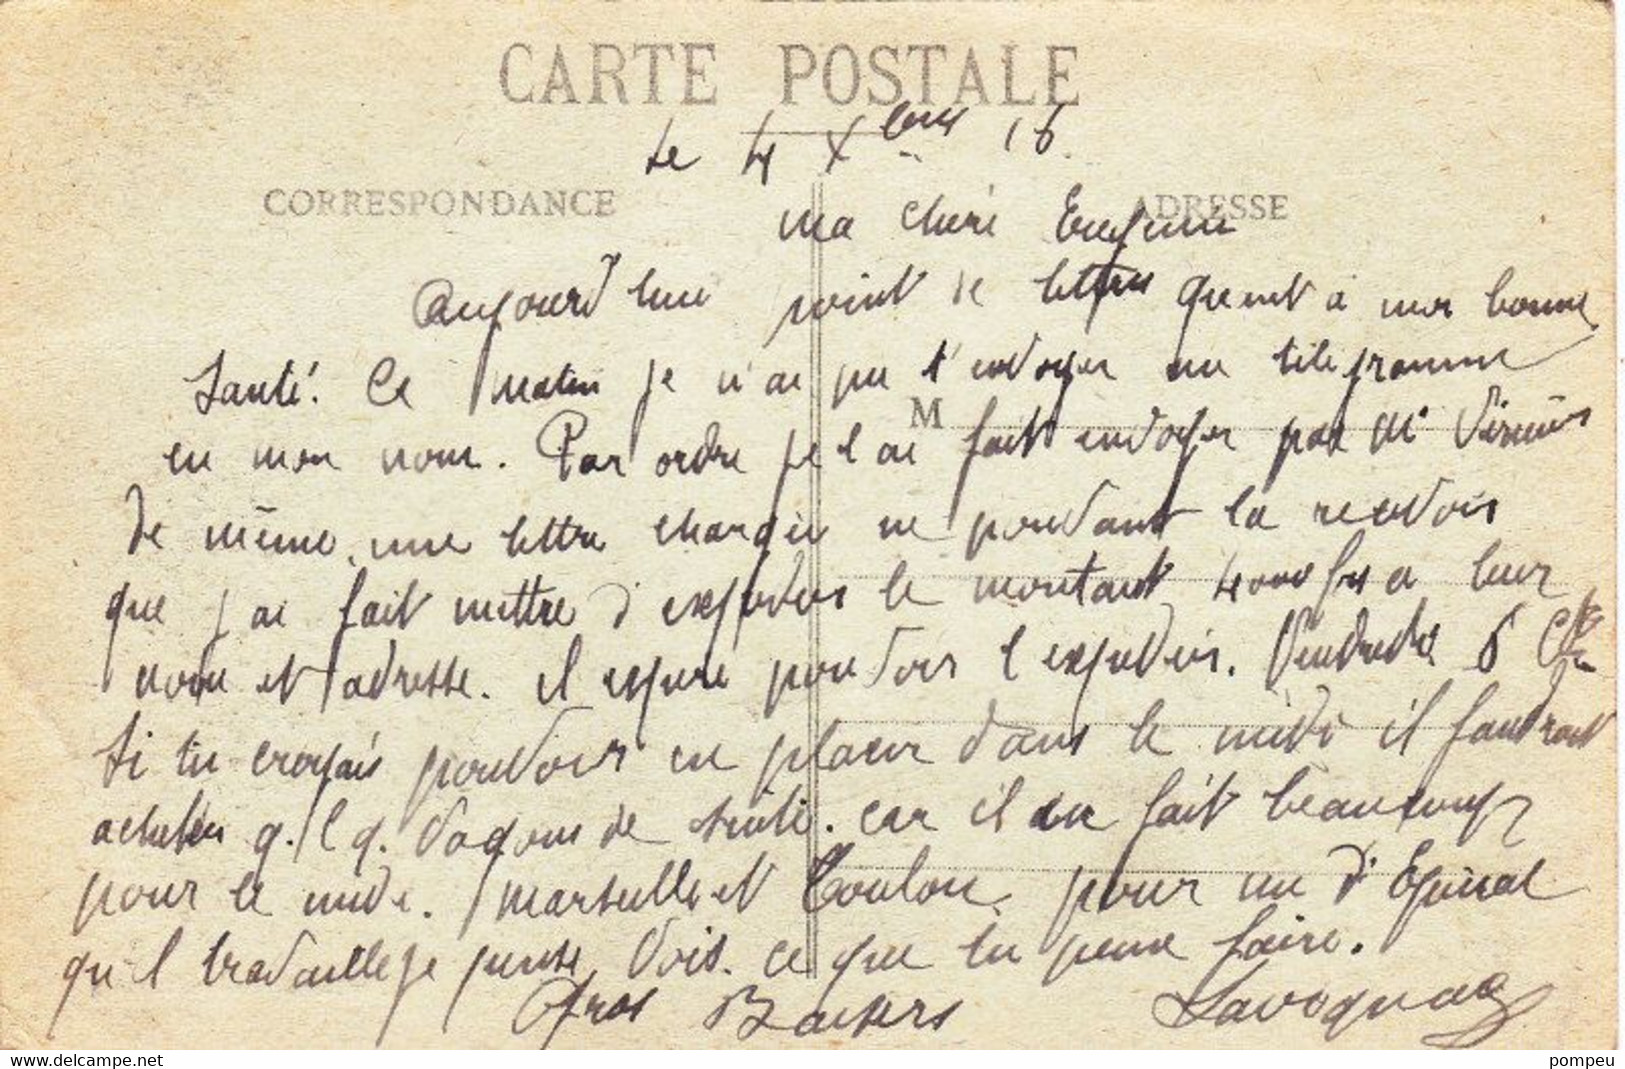 CARTE POSTALE
Le 4 Xbre 16
CORRESPONDANCE
ADRESSE
Ma Cheri Eugenie
Aujourd hui point de lettres quent à ma bonne
Santé. Ce matin je n'ai pu t'envoyer un télégramme
M
en mon nom. Par ordre je l ai fait envoyer par Mr
de même, une lettre chargée ne pouvant la recevoir
que j'ai fait mettre d'expedier le montant 4000 frs a leur
nom et adresse. il espere pouvoir l expedier. Vendredi
Si tu croyais pouvoir en placer dans le midi il faudrait
acheter q.lq. Vagons de . car il en fait beaucoup
pour le midi. Marseille et Toulon. pour un d'Epinal
qu'il travaille je pense, Vois. ce que tu peux faire.
Gros Baisers
Lavognac
pompeu